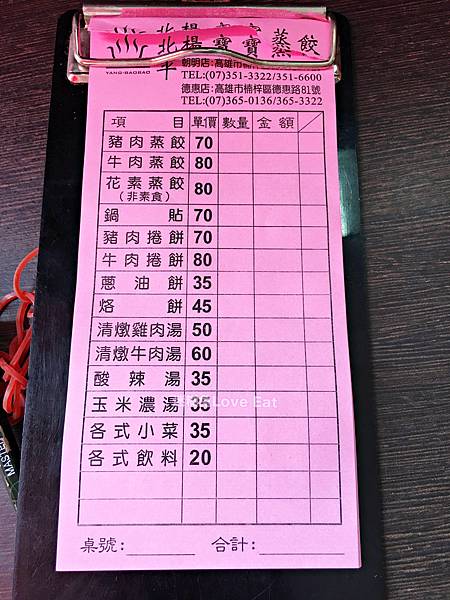 北 楊寶寶蒸餃
平
YANG-BAOBAO
朝明店:高雄市楠梓
TEL:(07)351-3322/351-6600
德惠店:高雄市楠梓區德惠路81號
TEL:(07)365-0136/365-3322
項 目 單價 數量 金額
豬肉蒸餃 70
牛肉蒸餃 80
花素蒸餃 80
(非素食)
鍋貼 70
豬肉捲餅 70
牛肉捲餅 80
蔥油餅 35
烙餅 45
清燉雞肉湯 50
清燉牛肉湯 60
酸辣湯 35
玉米濃湯 35
Love Eat
各式小菜 35
各式飲料 20
桌號: 合計:
MASTER